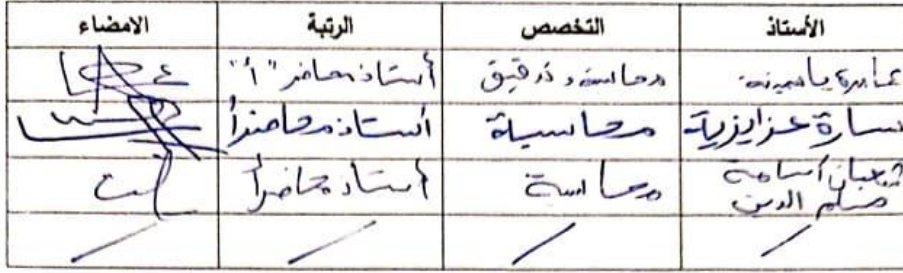 الأستاذ التخصص الرتبة الامضاء
ياسمينة محاسبة و تدقيق أستاذ محاضر "أ"
سارة عزايزية محاسبة أستاذ محاضر أ
شعبان أسامة محاسبة أستاذ محاضر أ
الدين